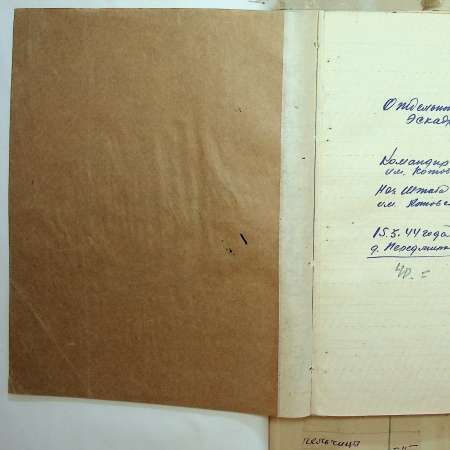 Отдельн
эскад
Командир
им. Котов
Нач. Штаба
им. Котовс
15.5.44 года
д.